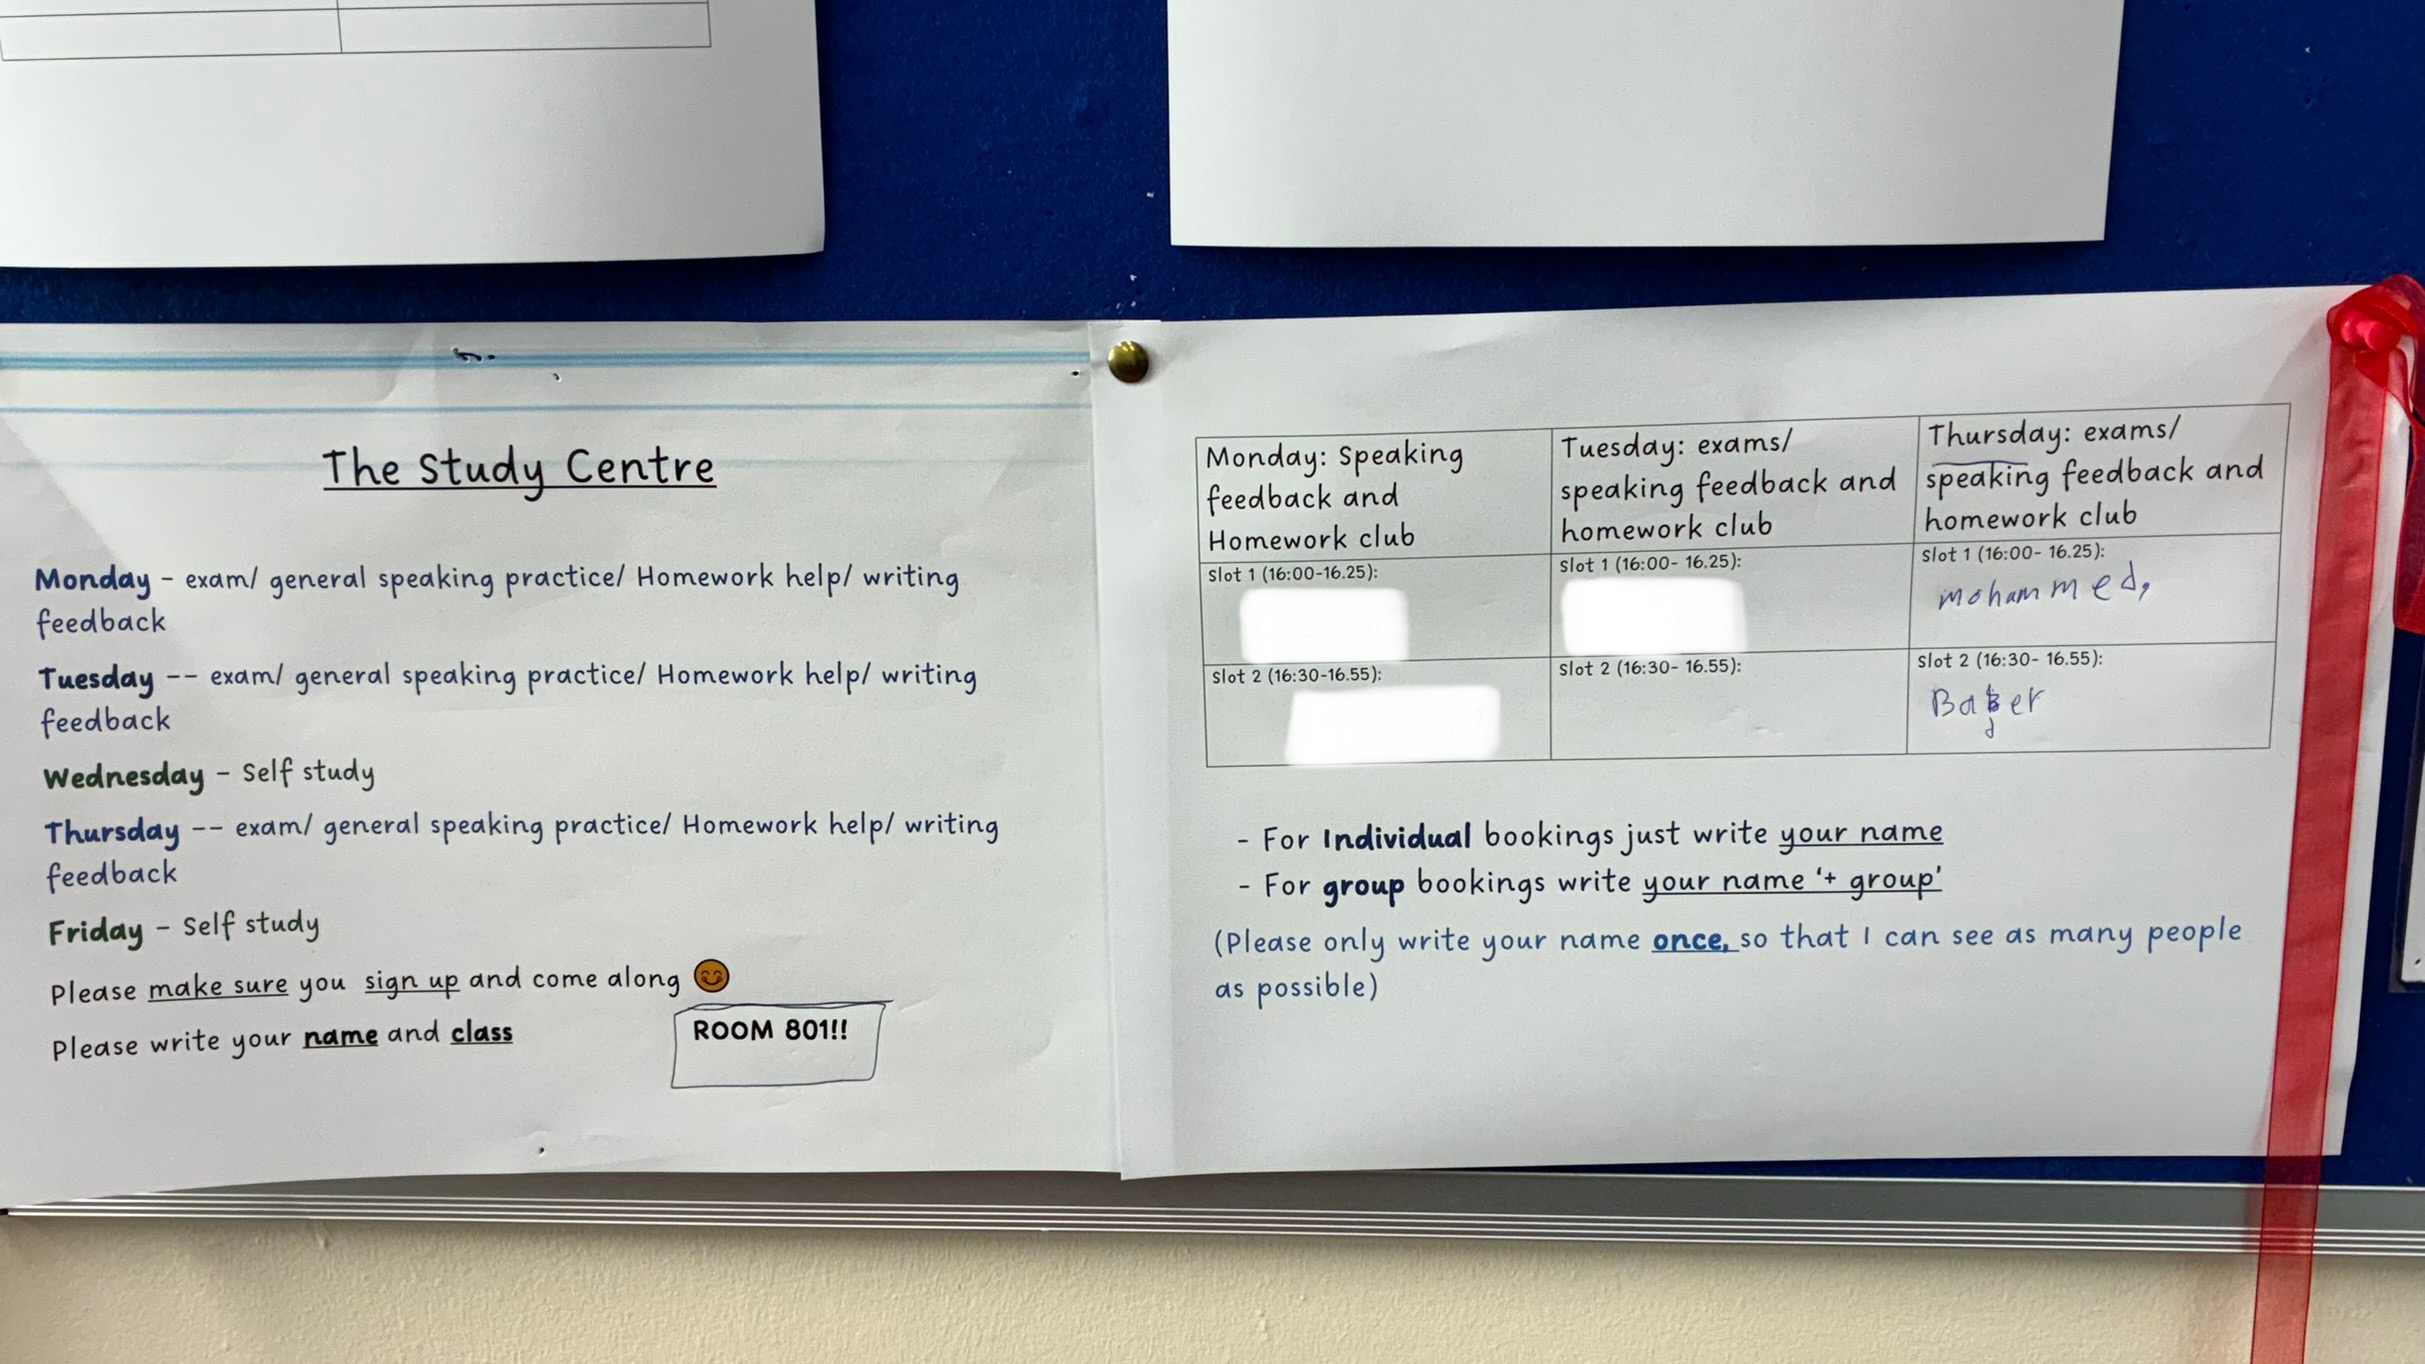 The Study Centre
Monday – exam/ general speaking practice/ Homework help/ writing
feedback
Tuesday -- exam/ general speaking practice/ Homework help/ writing
feedback
Wednesday – Self study
Thursday -- exam/ general speaking practice/ Homework help/ writing
feedback
Friday – Self study
Please make sure you sign up and come along
Please write your name and class
ROOM 801!!
Monday: Speaking
feedback and
Homework club
Tuesday: exams/
speaking feedback and
homework club
Thursday: exams/
speaking feedback and
homework club
Slot 1 (16:00-16.25):
Slot 1 (16:00- 16.25):
Slot 1 (16:00- 16.25):
mohammed,
Slot 2 (16:30-16.55):
Slot 2 (16:30- 16.55):
Slot 2 (16:30- 16.55):
- For Individual bookings just write your name
- For group bookings write your name '+ group'
(Please only write your name once, so that I can see as many people
as possible)